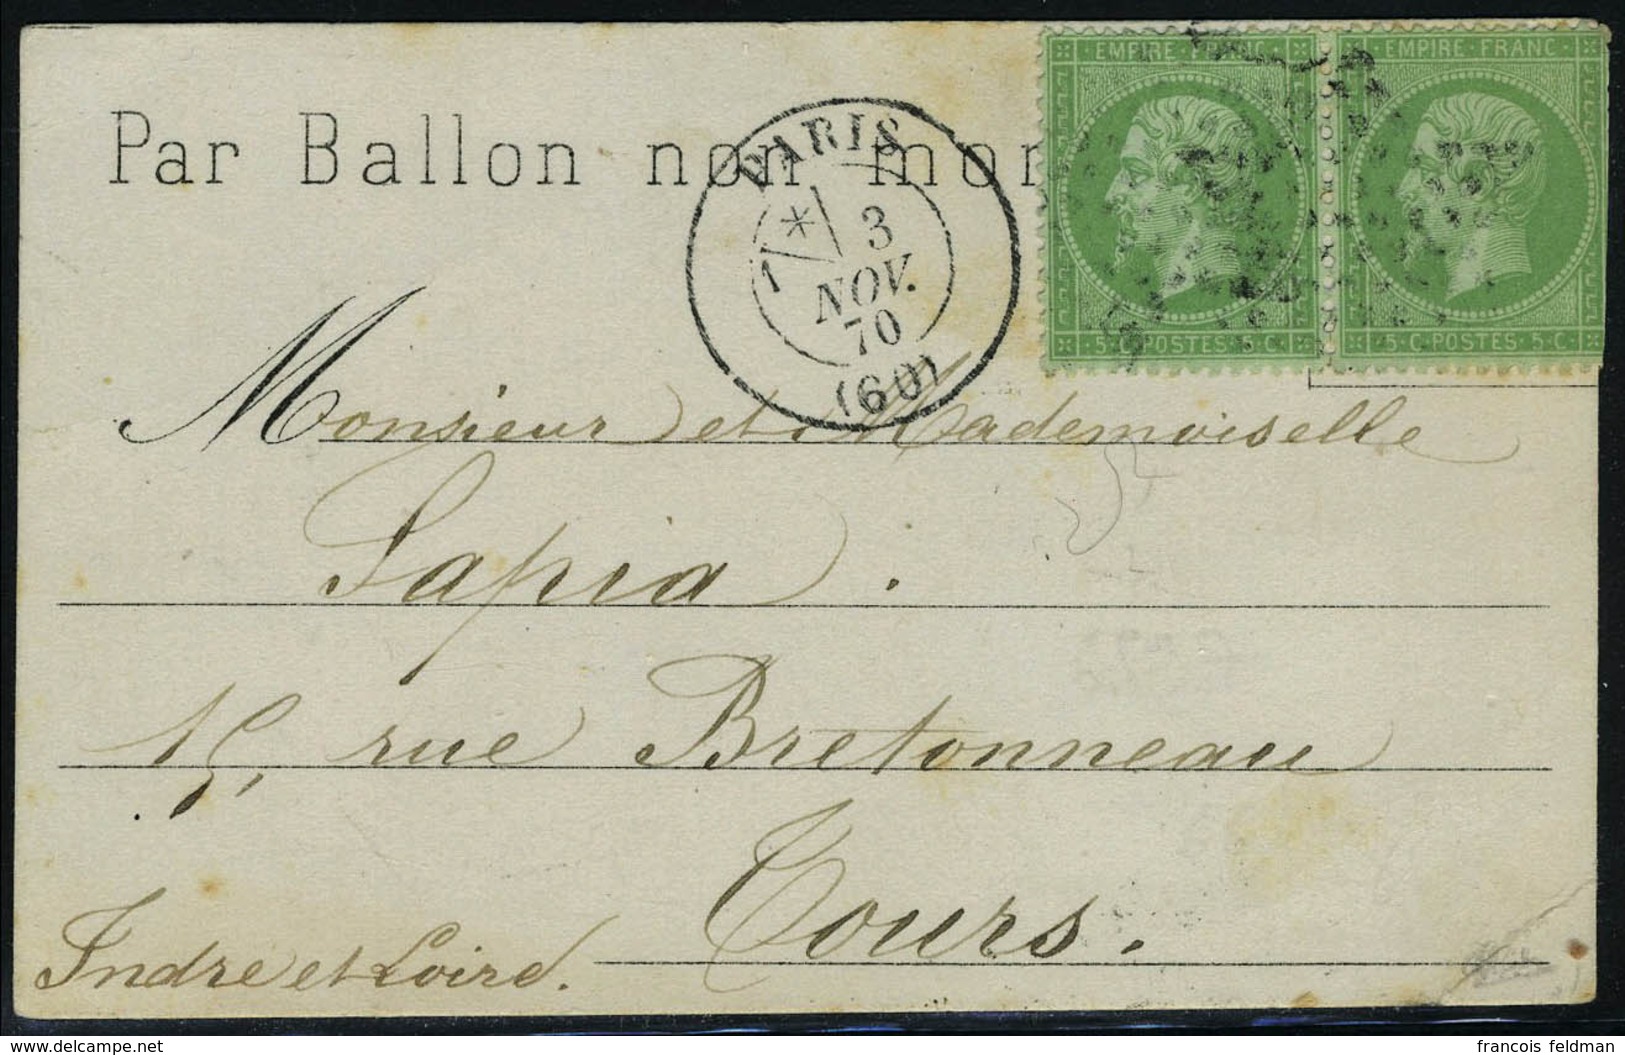 EMPIRE · FRANC · EMPIRE · FRANC
Par Ballon non mon
PARIS
1 3
NOV.
70
(60)
5 · C · POSTES · 5 · C · 5 · C · POSTES · 5 · C ·
Monsieur et Mademoiselle
Sapia
15, rue Bretonneau
Tours.
Indre et Loire.
www.delcampe.net
francois feldman